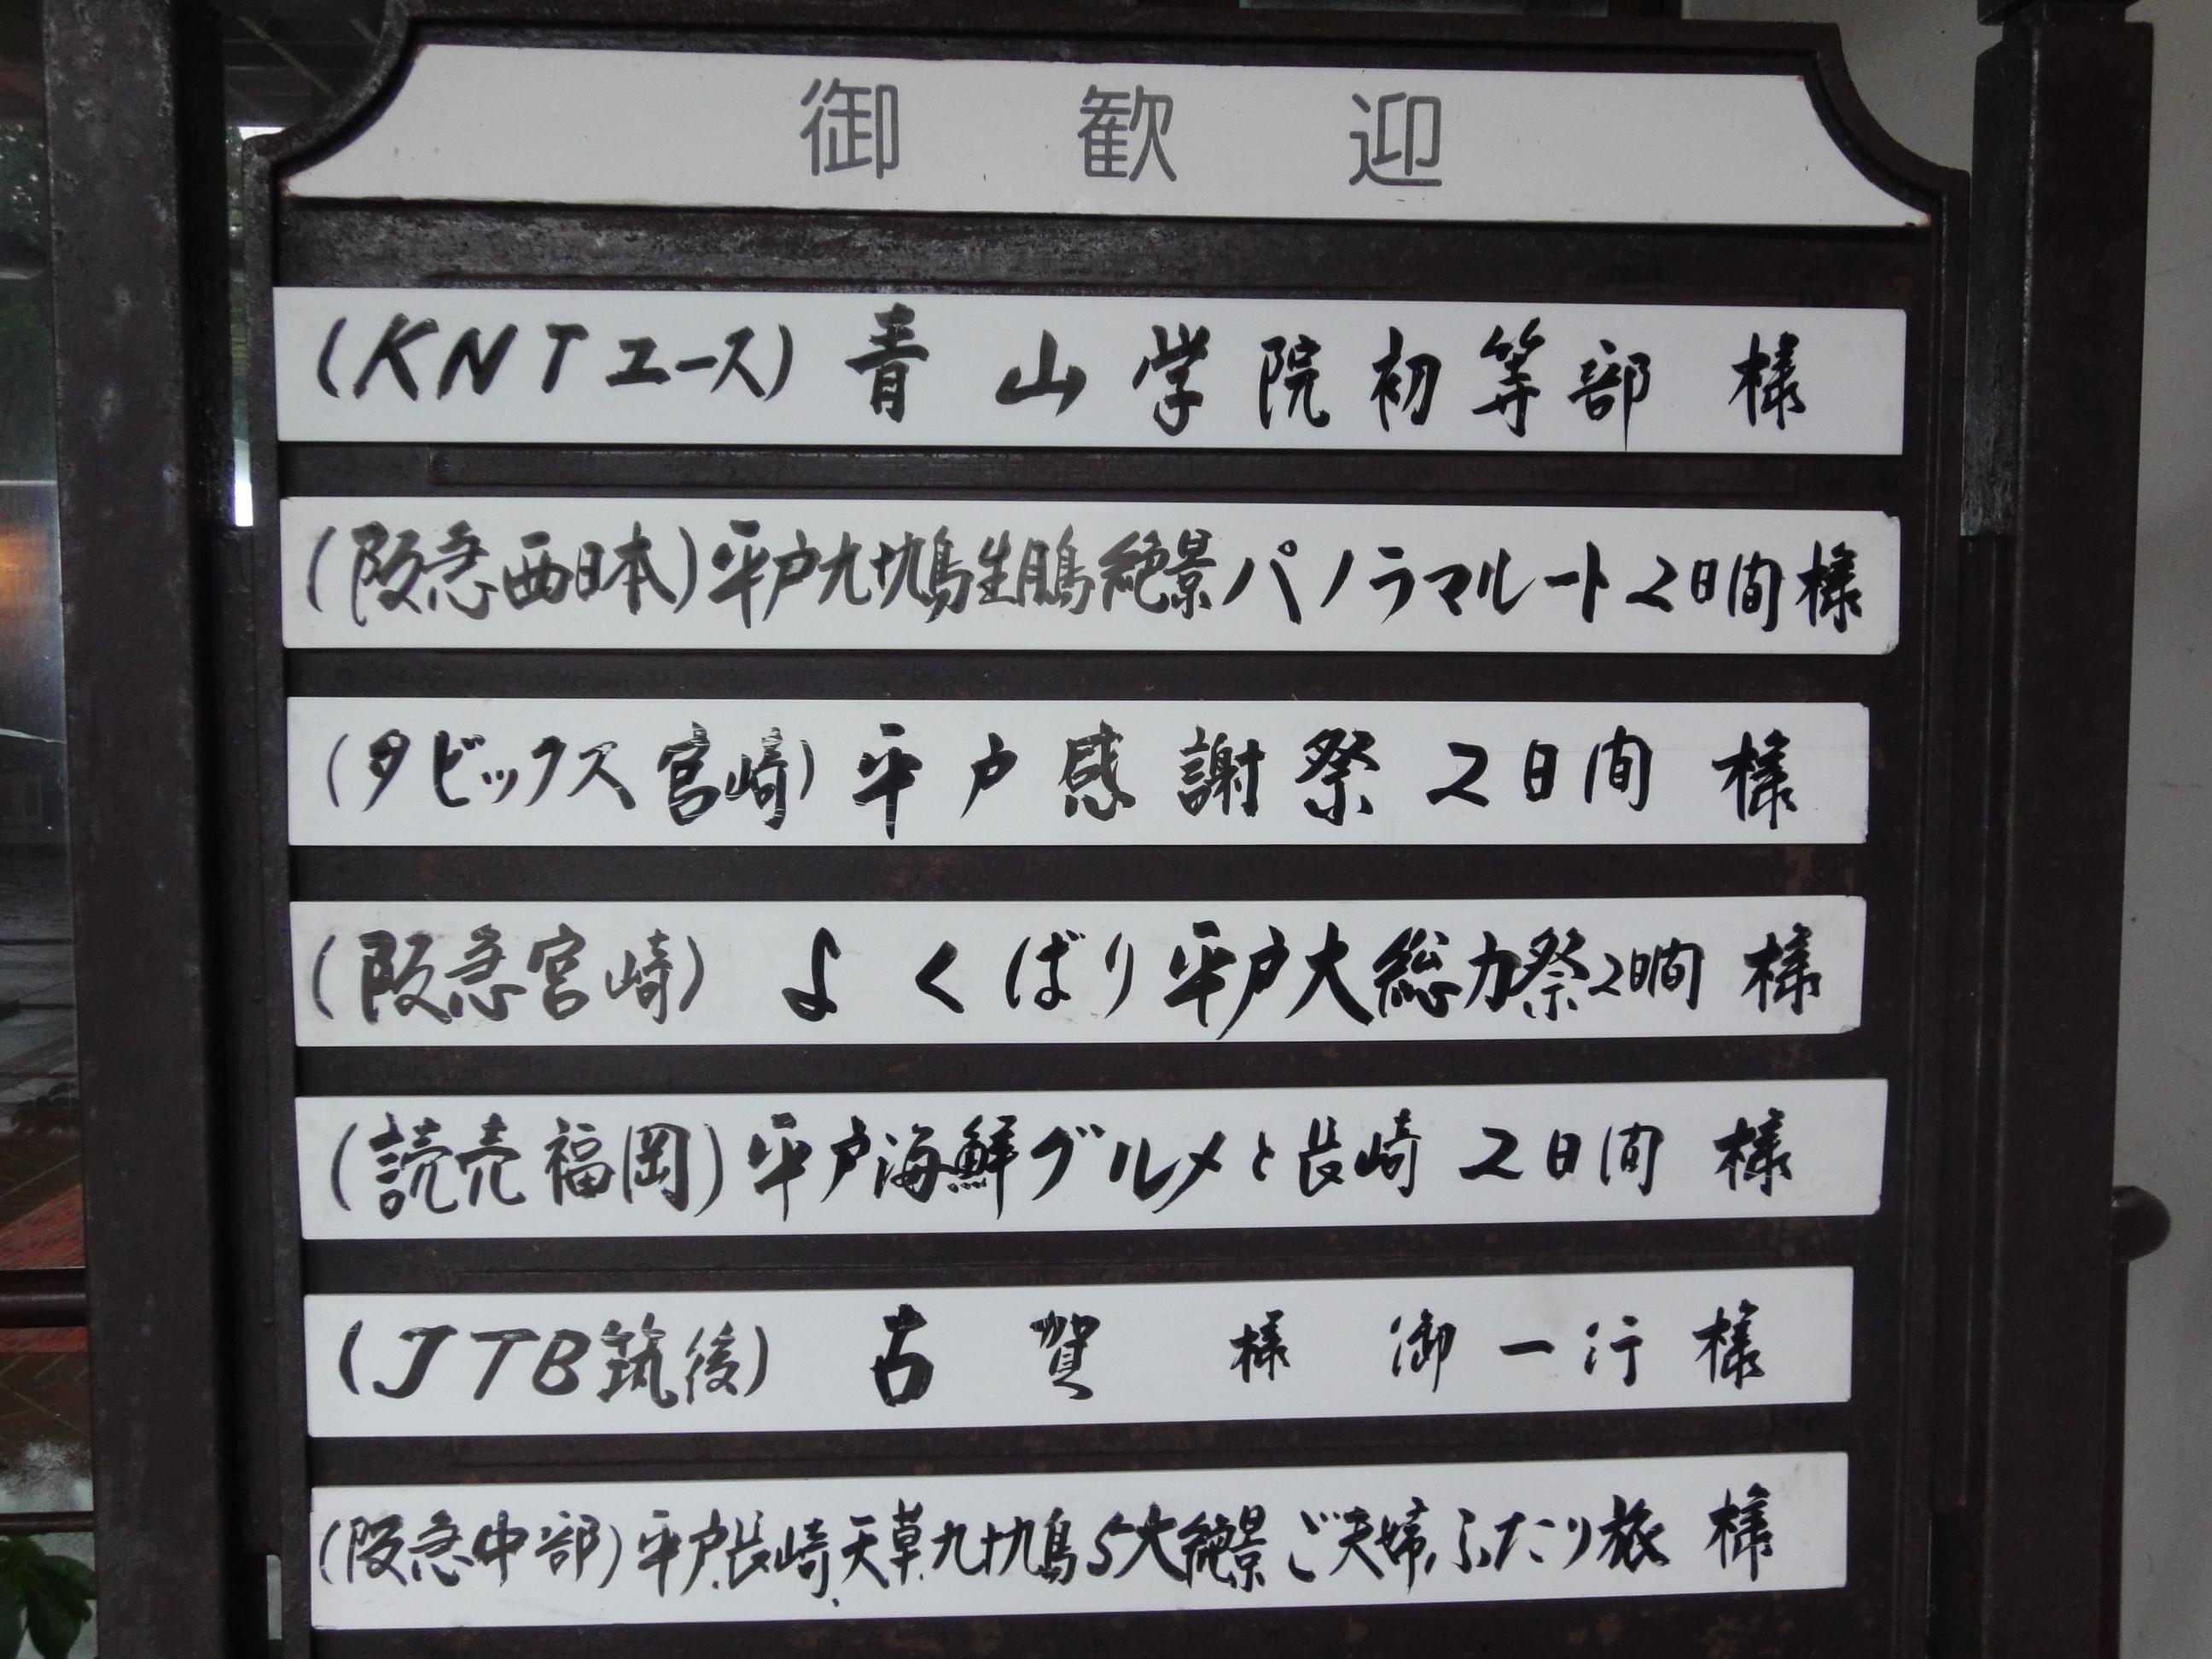 御歓迎
(KNTユース)青山学院初等部 様
(阪急西日本)平戸九十九島生月島絶景パノラマルート2日間様
(タビックス宮崎)平戸感謝祭2日間 様
(阪急宮崎) よくばり平戸大総力祭2日間 様
(読売福岡)平戸海鮮グルメと長崎 2日間 様
(JTB筑後) 古賀様御一行様
(阪急中部)平戸.長崎.天草.九十九島5大絶景ご夫婦.ふたり旅 様